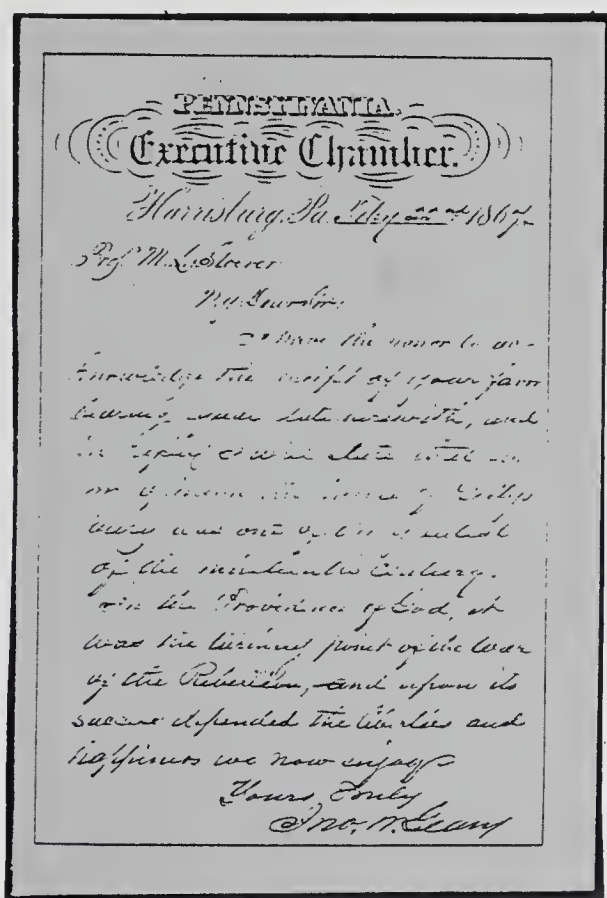 PENNSYLVANIA.
Executive Chamber.
Harrisburg, Pa. Feby 22nd 1867.
Prof. M. L. Stoever
My Dear Sir:
I have the honor to ac-
knowledge the receipt of your favor
bearing date herewith, and
in reply would state that in
my opinion the battle of Gettys
burg was one of the
of the nineteenth Century.
In the Providence of God, it
was the turning point of the War
of the Rebellion, and upon its
success depended the liberties and
happiness we now enjoy
Yours Truly
Jno. W. Geary